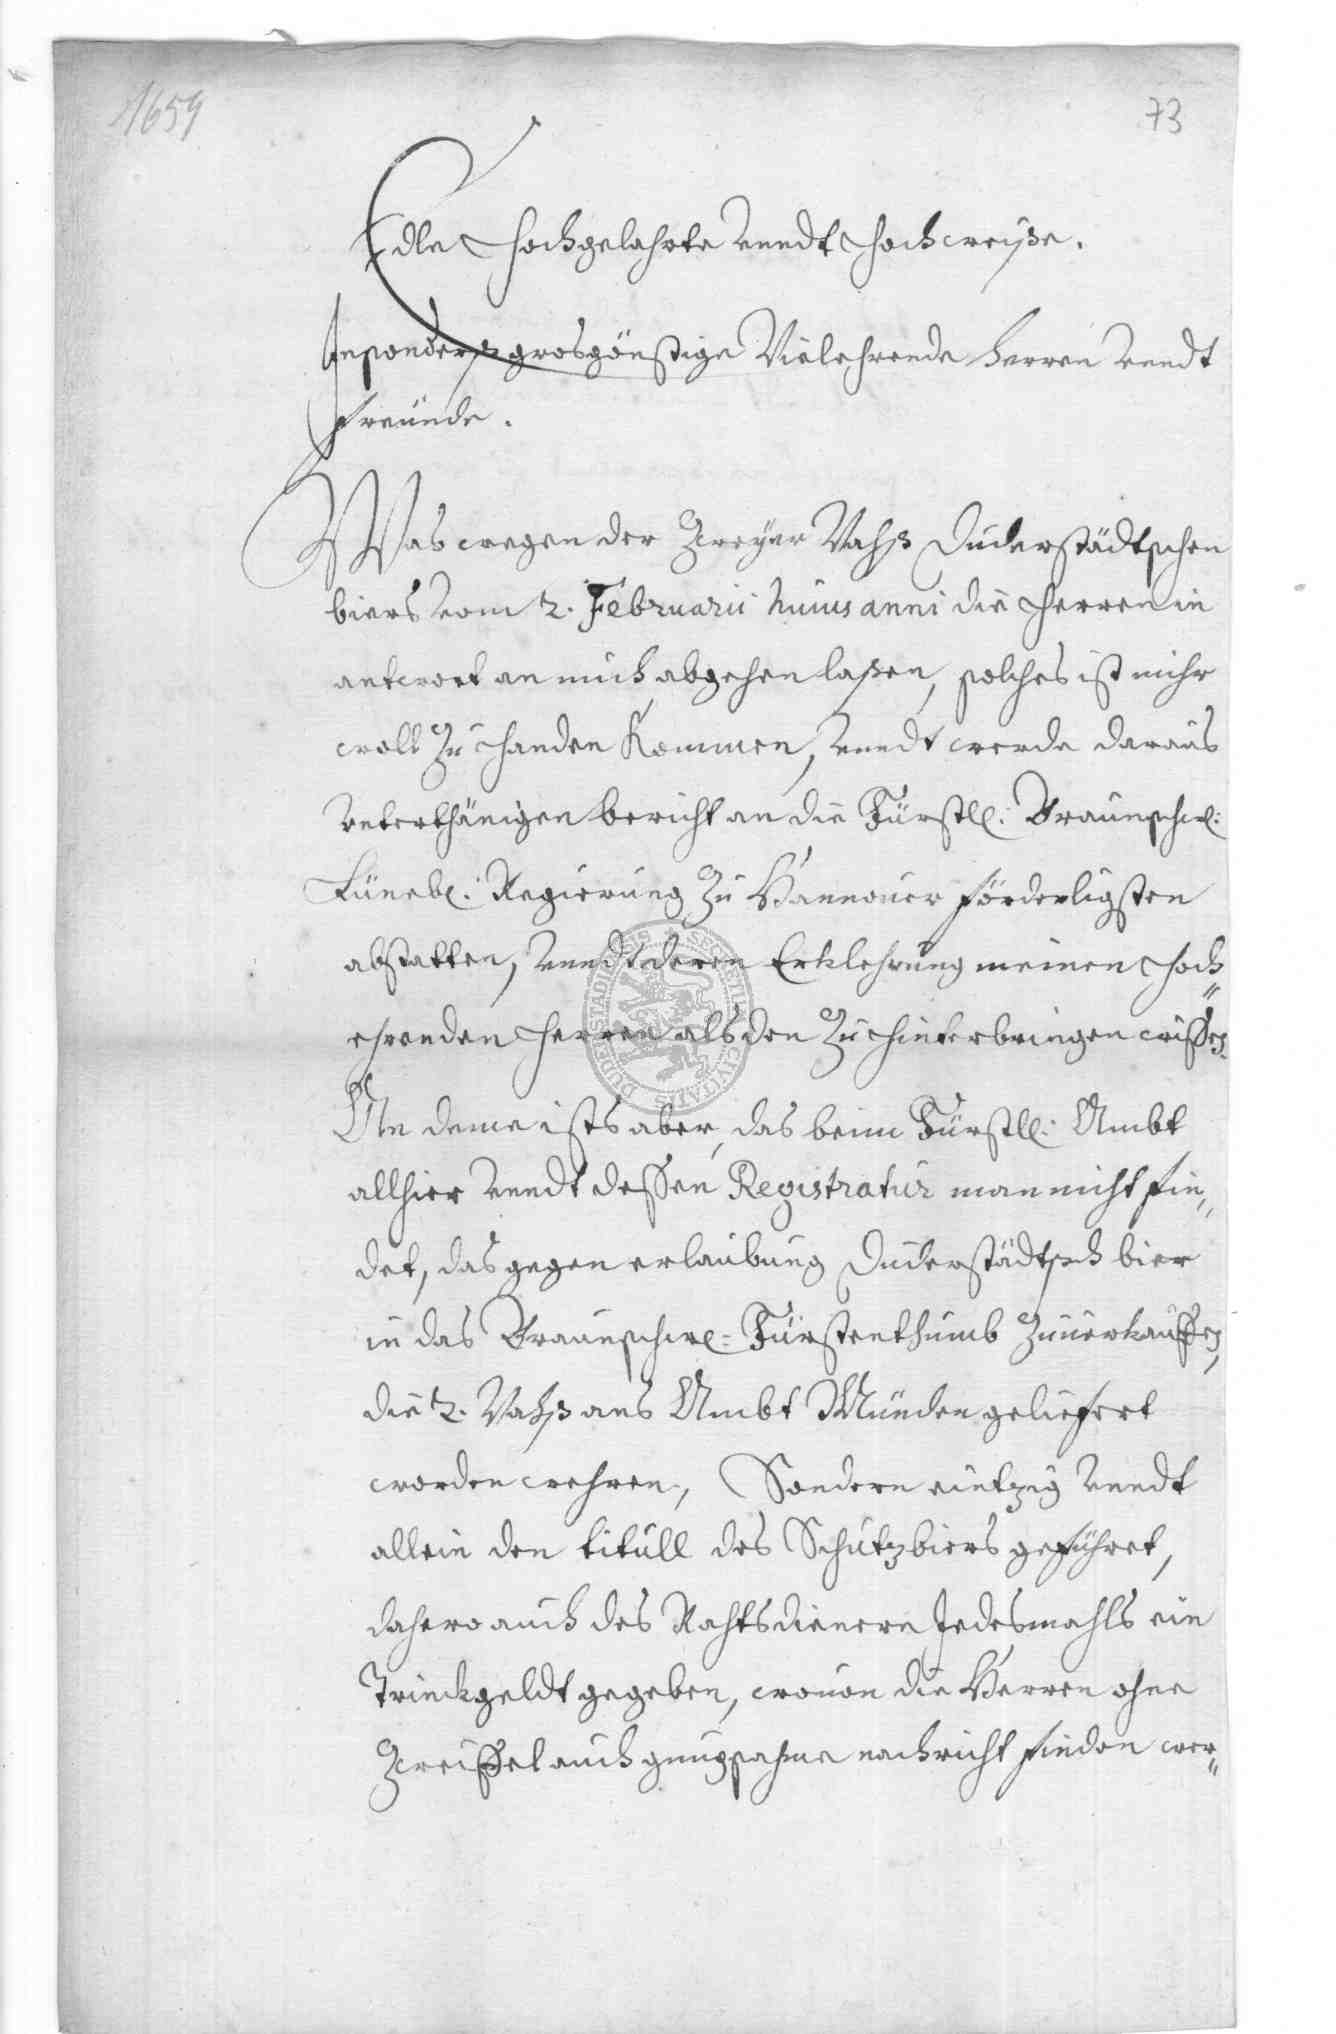 1659
73
Edle Hochgelahrte vndt Hochweiße.
Insonderß grosgönstige Vielehrende Herren vndt
Freünde.
Was wegen der Zweyer Vahß Duderstädtschen
biers vom 2. Februarii huius anni die Herren in
antwort an mich abgehen laßen, solches ist mihr
woll zu Handen kommen, vndt werde daraus
vnterthänigen bericht an die Fürstl: Braunschw:
Lüneb: Regierung zu Hannouer förderligsten
abstatten, vndt deren Erklehrung meinen Hoch„
ehrenden Herren alsden zu hinterbringen wißen.
An deme ists aber, das beim Fürstl: Ambt
allhier vndt deßen Registratur man nicht fin„
det, das gegen erlaubung Duderstädtsch bier
in das Braunschw: Fürstenthumb zuuerkauffen,
die 2. Vahß ans Ambt Münden geliefert
worden wehren, Sondern eintzig vndt
allein den titull des Schutzbiers geführet,
dahero auch des Rahtsdienern Jedesmahls ein
Trinckgeldt gegeben, wouon die Herren ohne
Zweiffel auch gnugsahme nachricht finden wer„
SECRETUM CIVITATIS DUDERSTADIENSIS